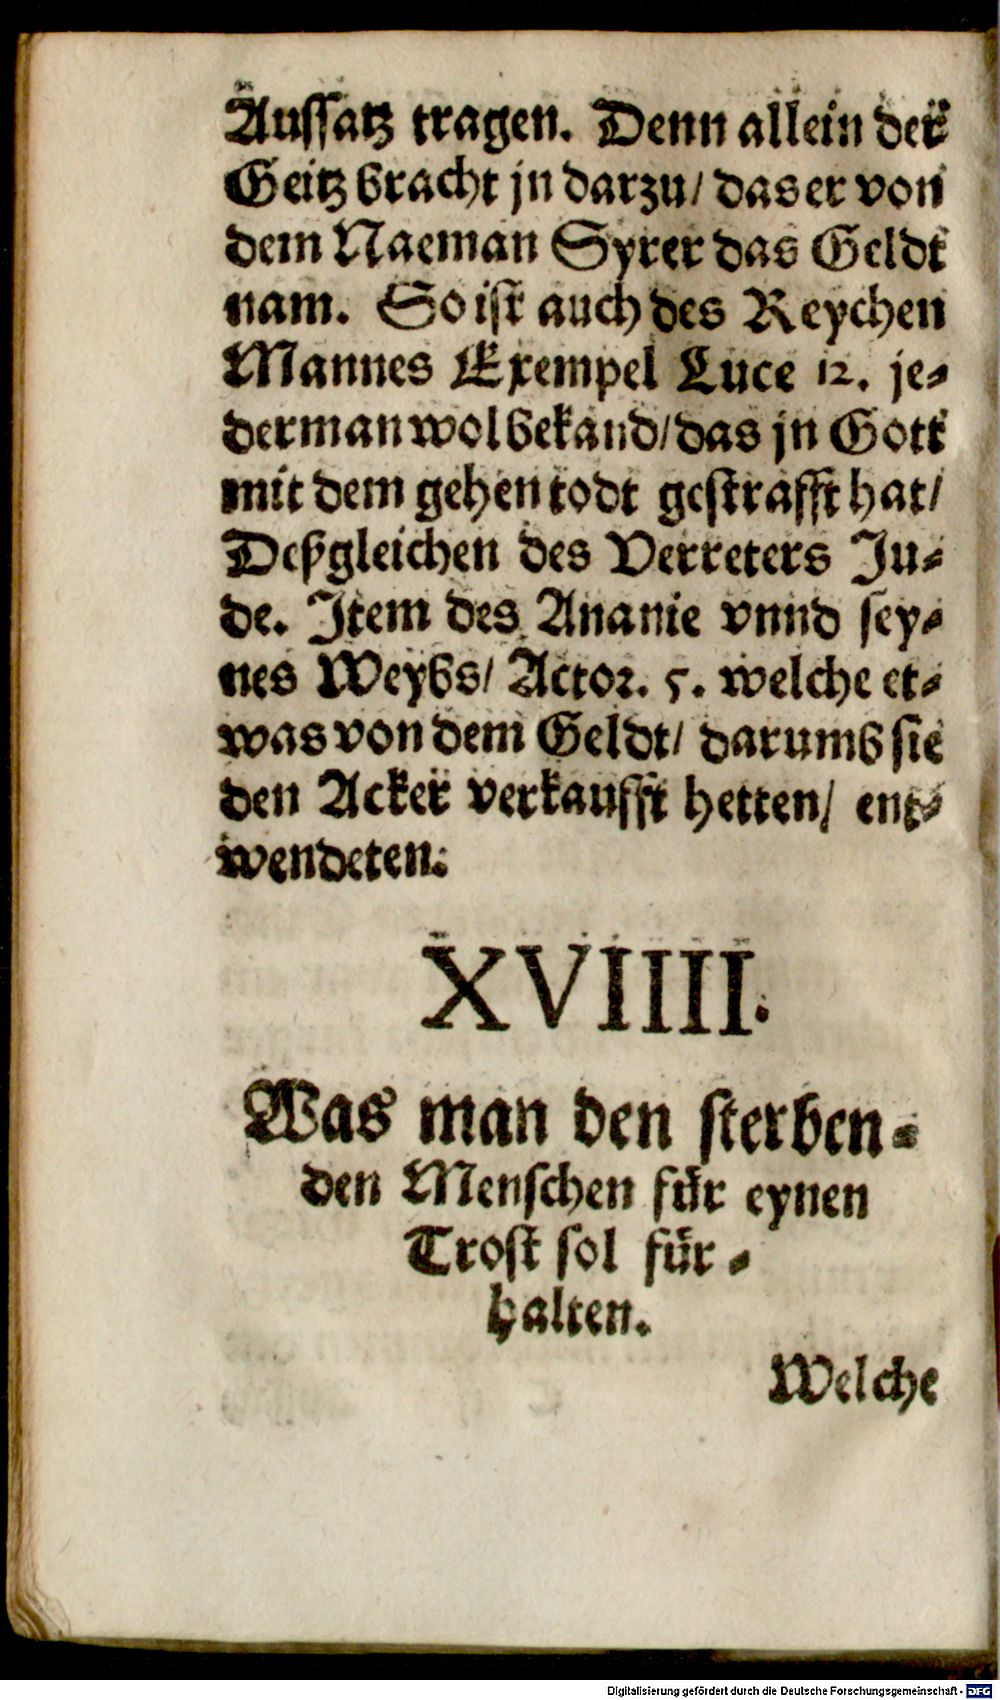 Auſſatz tragen. Denn allein der
Geitz bracht jn darzu/ das er von
dem Naeman Syrer das Geldt
nam. So iſt auch des Reychen
Mannes Exempel Luce 12. je-
derman wol bekand/ das jn Gott
mit dem gehen todt geſtrafft hat/
Deßgleichen des Verreters Ju-
de. Item des Ananie vnnd ſey-
nes Weybs/ Actor. 5. welche et-
was von dem Geldt/ darumb ſie
den Acker verkaufft hetten/ ent-
wendeten.
XVIIII.
Was man den ſterben-
den Menſchen für eynen
Troſt ſol für-
halten.
Welche
Digitalisierung gefördert durch die Deutsche Forschungsgemeinschaft - DFG